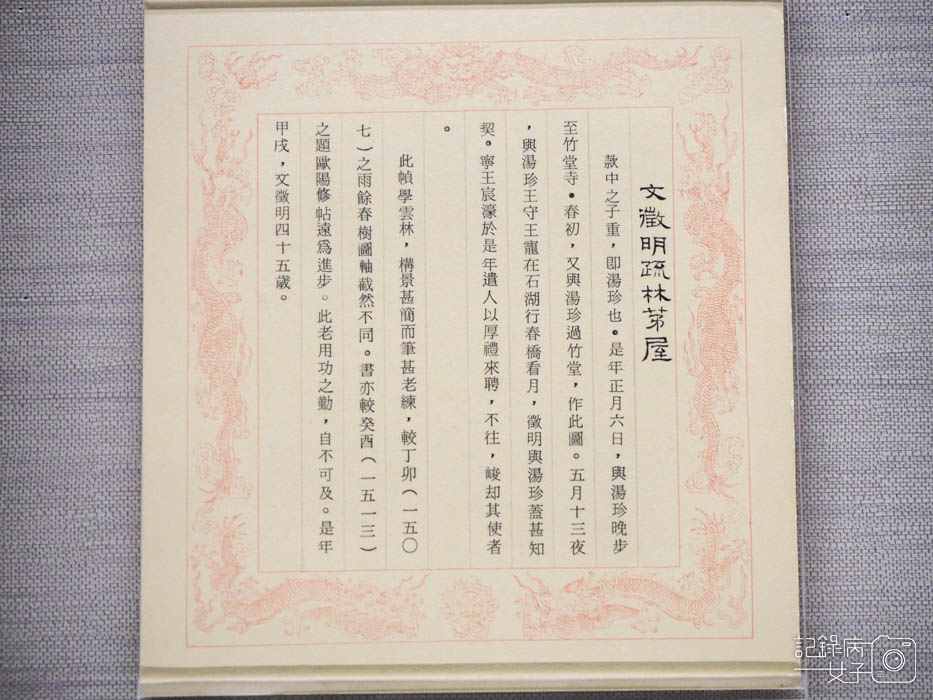 文徵明疏林茅屋
款中之子重，卽湯珍也。是年正月六日，與湯珍晚步
至竹堂寺。春初，又與湯珍過竹堂，作此圖。五月十三夜
，與湯珍王守王寵在石湖行春橋看月，徵明與湯珍蓋甚知
契。寧王宸濠於是年遣人以厚禮來聘，不往，峻却其使者
。
此幀學雲林，構景甚簡而筆甚老練，較丁卯（一五〇
七）之雨餘春樹圖軸截然不同。書亦較癸酉（一五一三）
之題歐陽修帖遠爲進步。此老用功之勤，自不可及。是年
甲戌，文徵明四十五歲。
記錄病
女子